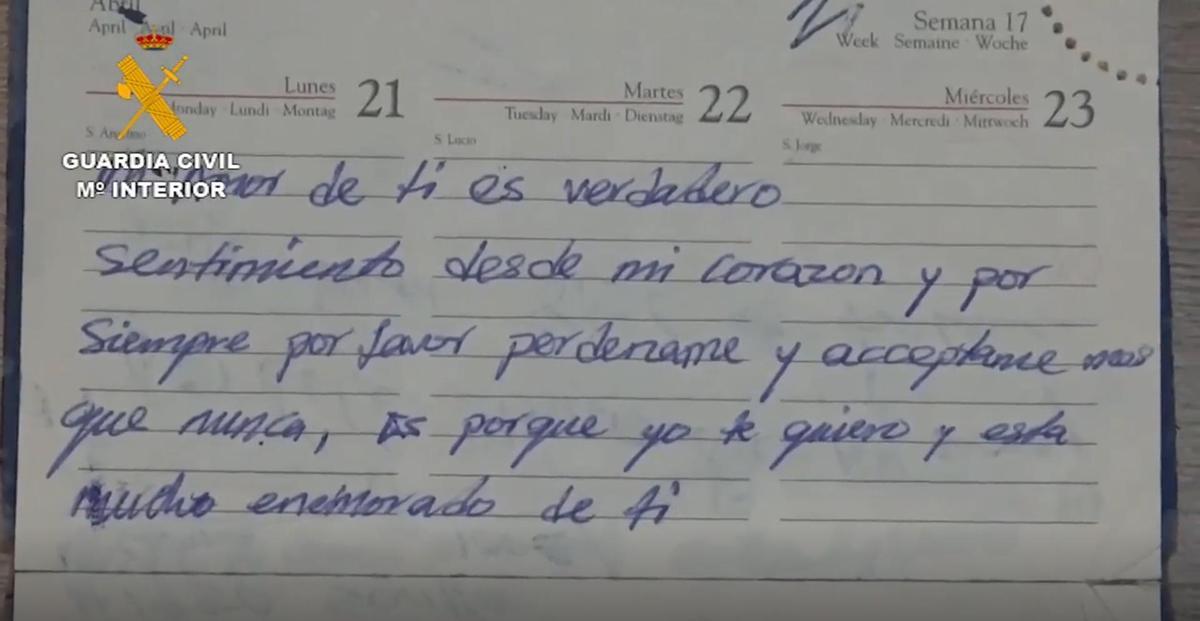 Abril
April · Avril · April
Semana 17
Week Semaine · Woche
Lunes 21
Monday · Lundi · Montag
Martes 22
Tuesday · Mardi · Dienstag
Miércoles 23
Wednesday · Mercredi · Mittwoch
S. Anselmo
S. Lucio
S. Jorge
GUARDIA CIVIL
Mº INTERIOR
amor de ti es verdadero
sentimiento desde mi corazon y por
siempre por favor perdename y acceptame mas
que nunca, es porque yo te quiero y esta
mucho enemorado de ti